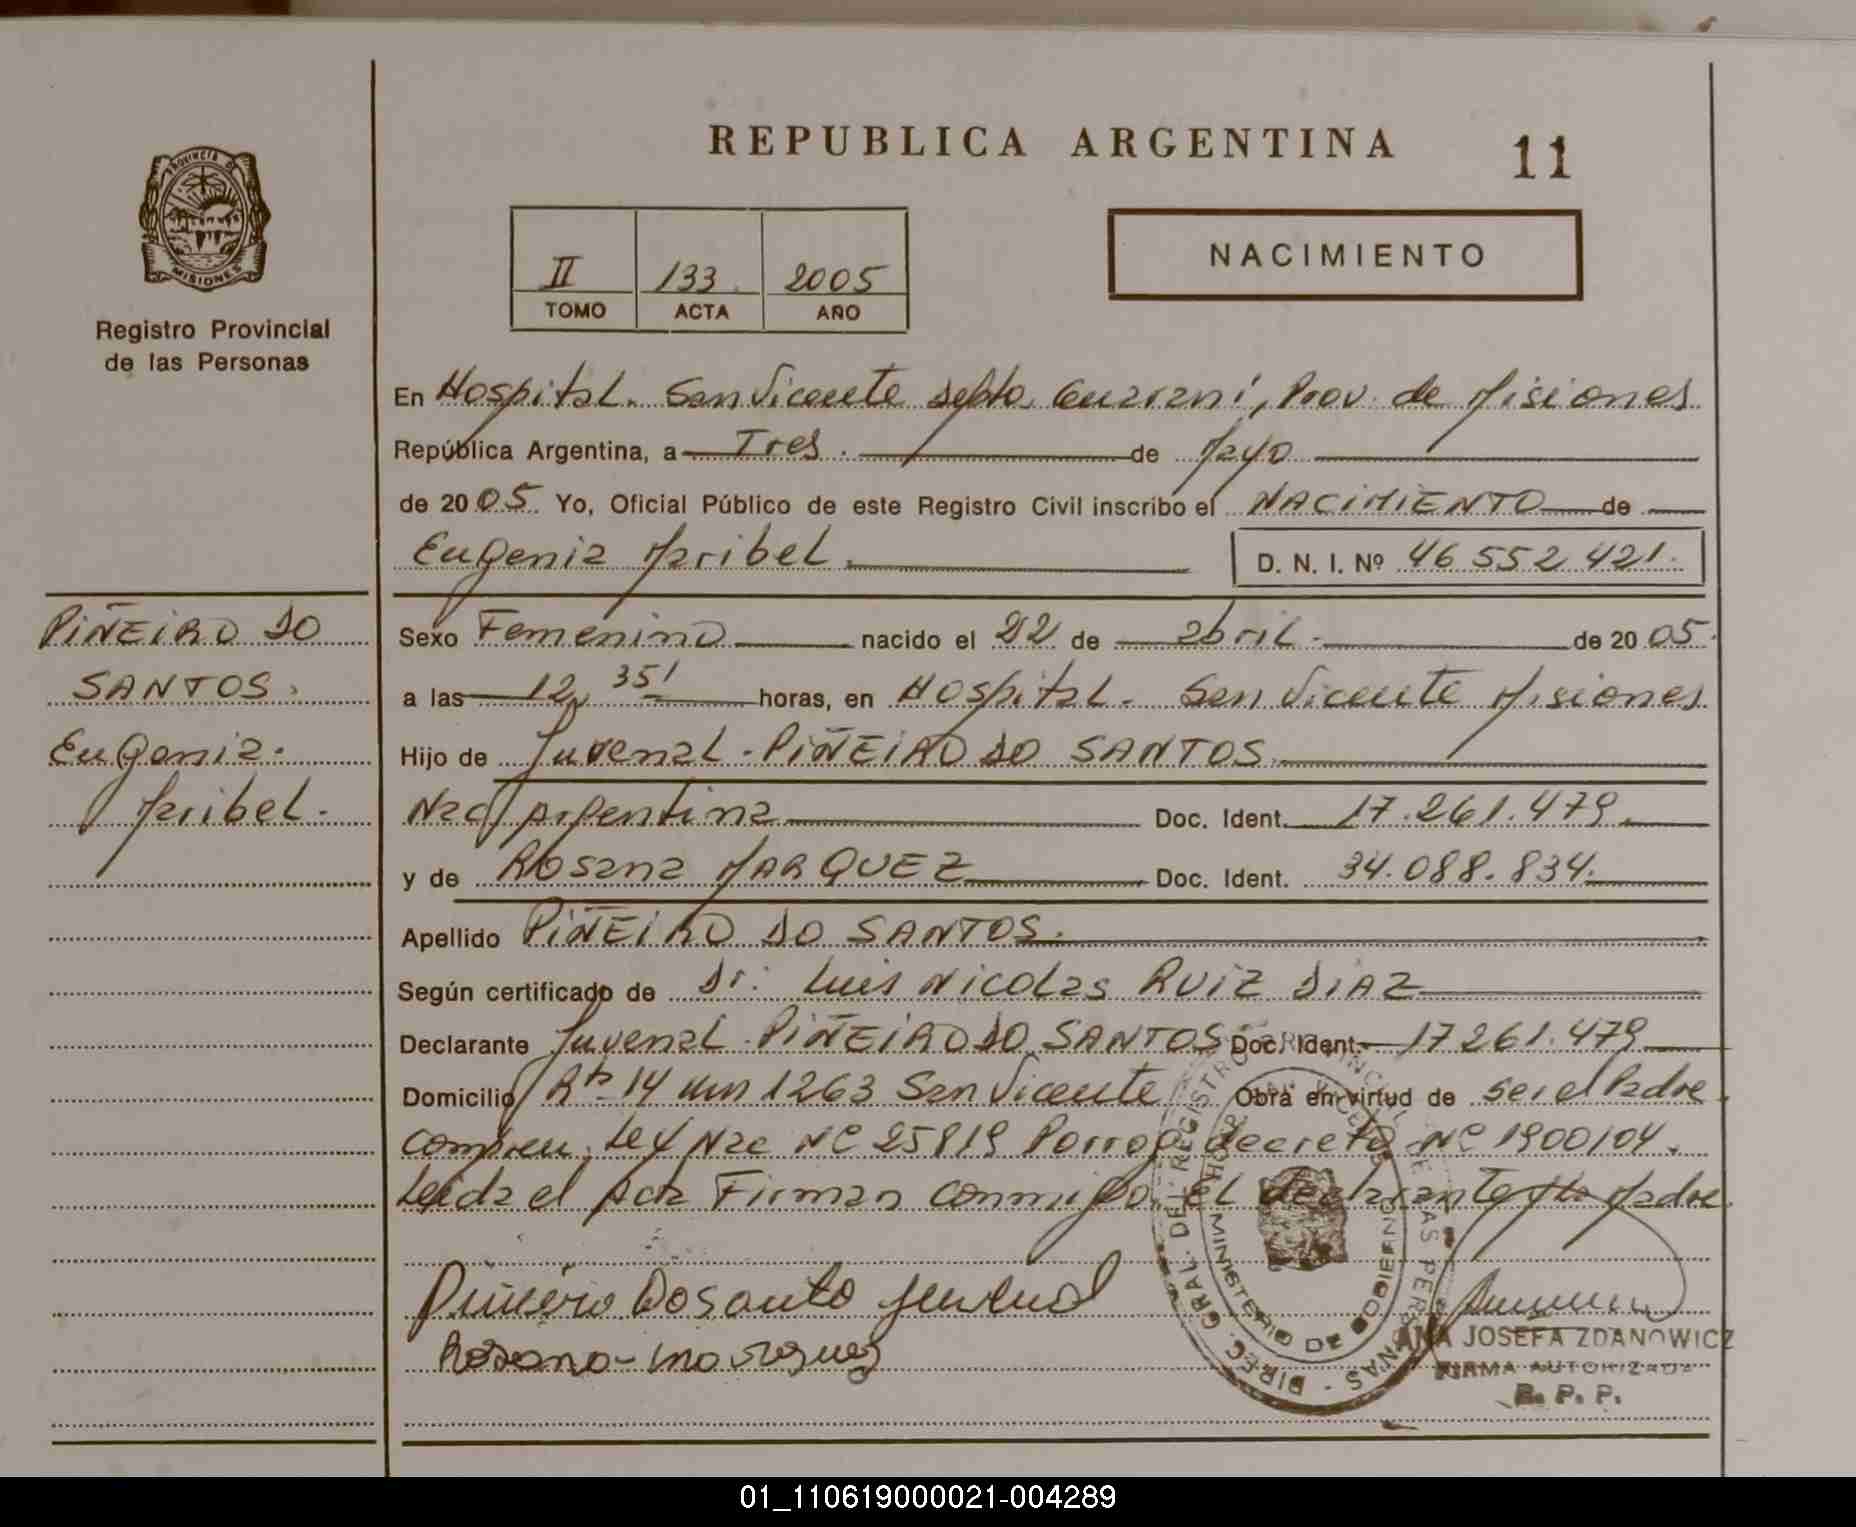 REPUBLICA ARGENTINA 11
PROVINCIA DE
MISIONES
Registro Provincial
de las Personas
II 133 2005
TOMO ACTA AÑO
NACIMIENTO
En Hospital. San Vicente depto. Guaraní, Prov. de Misiones
República Argentina, a Tres. de Mayo
de 2005. Yo, Oficial Público de este Registro Civil inscribo el NACIMIENTO de
Eugenia Maribel D. N. I. Nº 46 552 421.
PIÑEIRO DO
SANTOS.
Eugenia.
Maribel.
Sexo Femenino nacido el 22 de abril. de 2005.
a las 12, 35' horas, en Hospital. San Vicente Misiones
Hijo de Juvenal. PIÑEIRO DO SANTOS.
Nac Argentina Doc. Ident. 17.261.479.
y de Rosana MARQUEZ Doc. Ident. 34.088.834.
Apellido PIÑEIRO DO SANTOS.
Según certificado de Dr. Luis Nicolas RUIZ DIAZ
Declarante Juvenal. PIÑEIRO DO SANTOS Doc. Ident. 17261.479
Domicilio Rta 14 km 1263 San Vicente Obra en virtud de ser el Padre
Ley Nac Nº 25819 Prorrog decreto Nº 1900/04.
Leida el Acta Firman conmigo, el declarante y la Madre
Piñeiro Dosanto Juvenal
Rosana Marquez
DIREC. GRAL. DEL REGISTRO PROVINCIAL DE LAS PERSONAS
MINISTERIO DE GOBIERNO
ANA JOSEFA ZDANOWICZ
FIRMA AUTORIZADA
R. P. P.
01_110619000021-004289